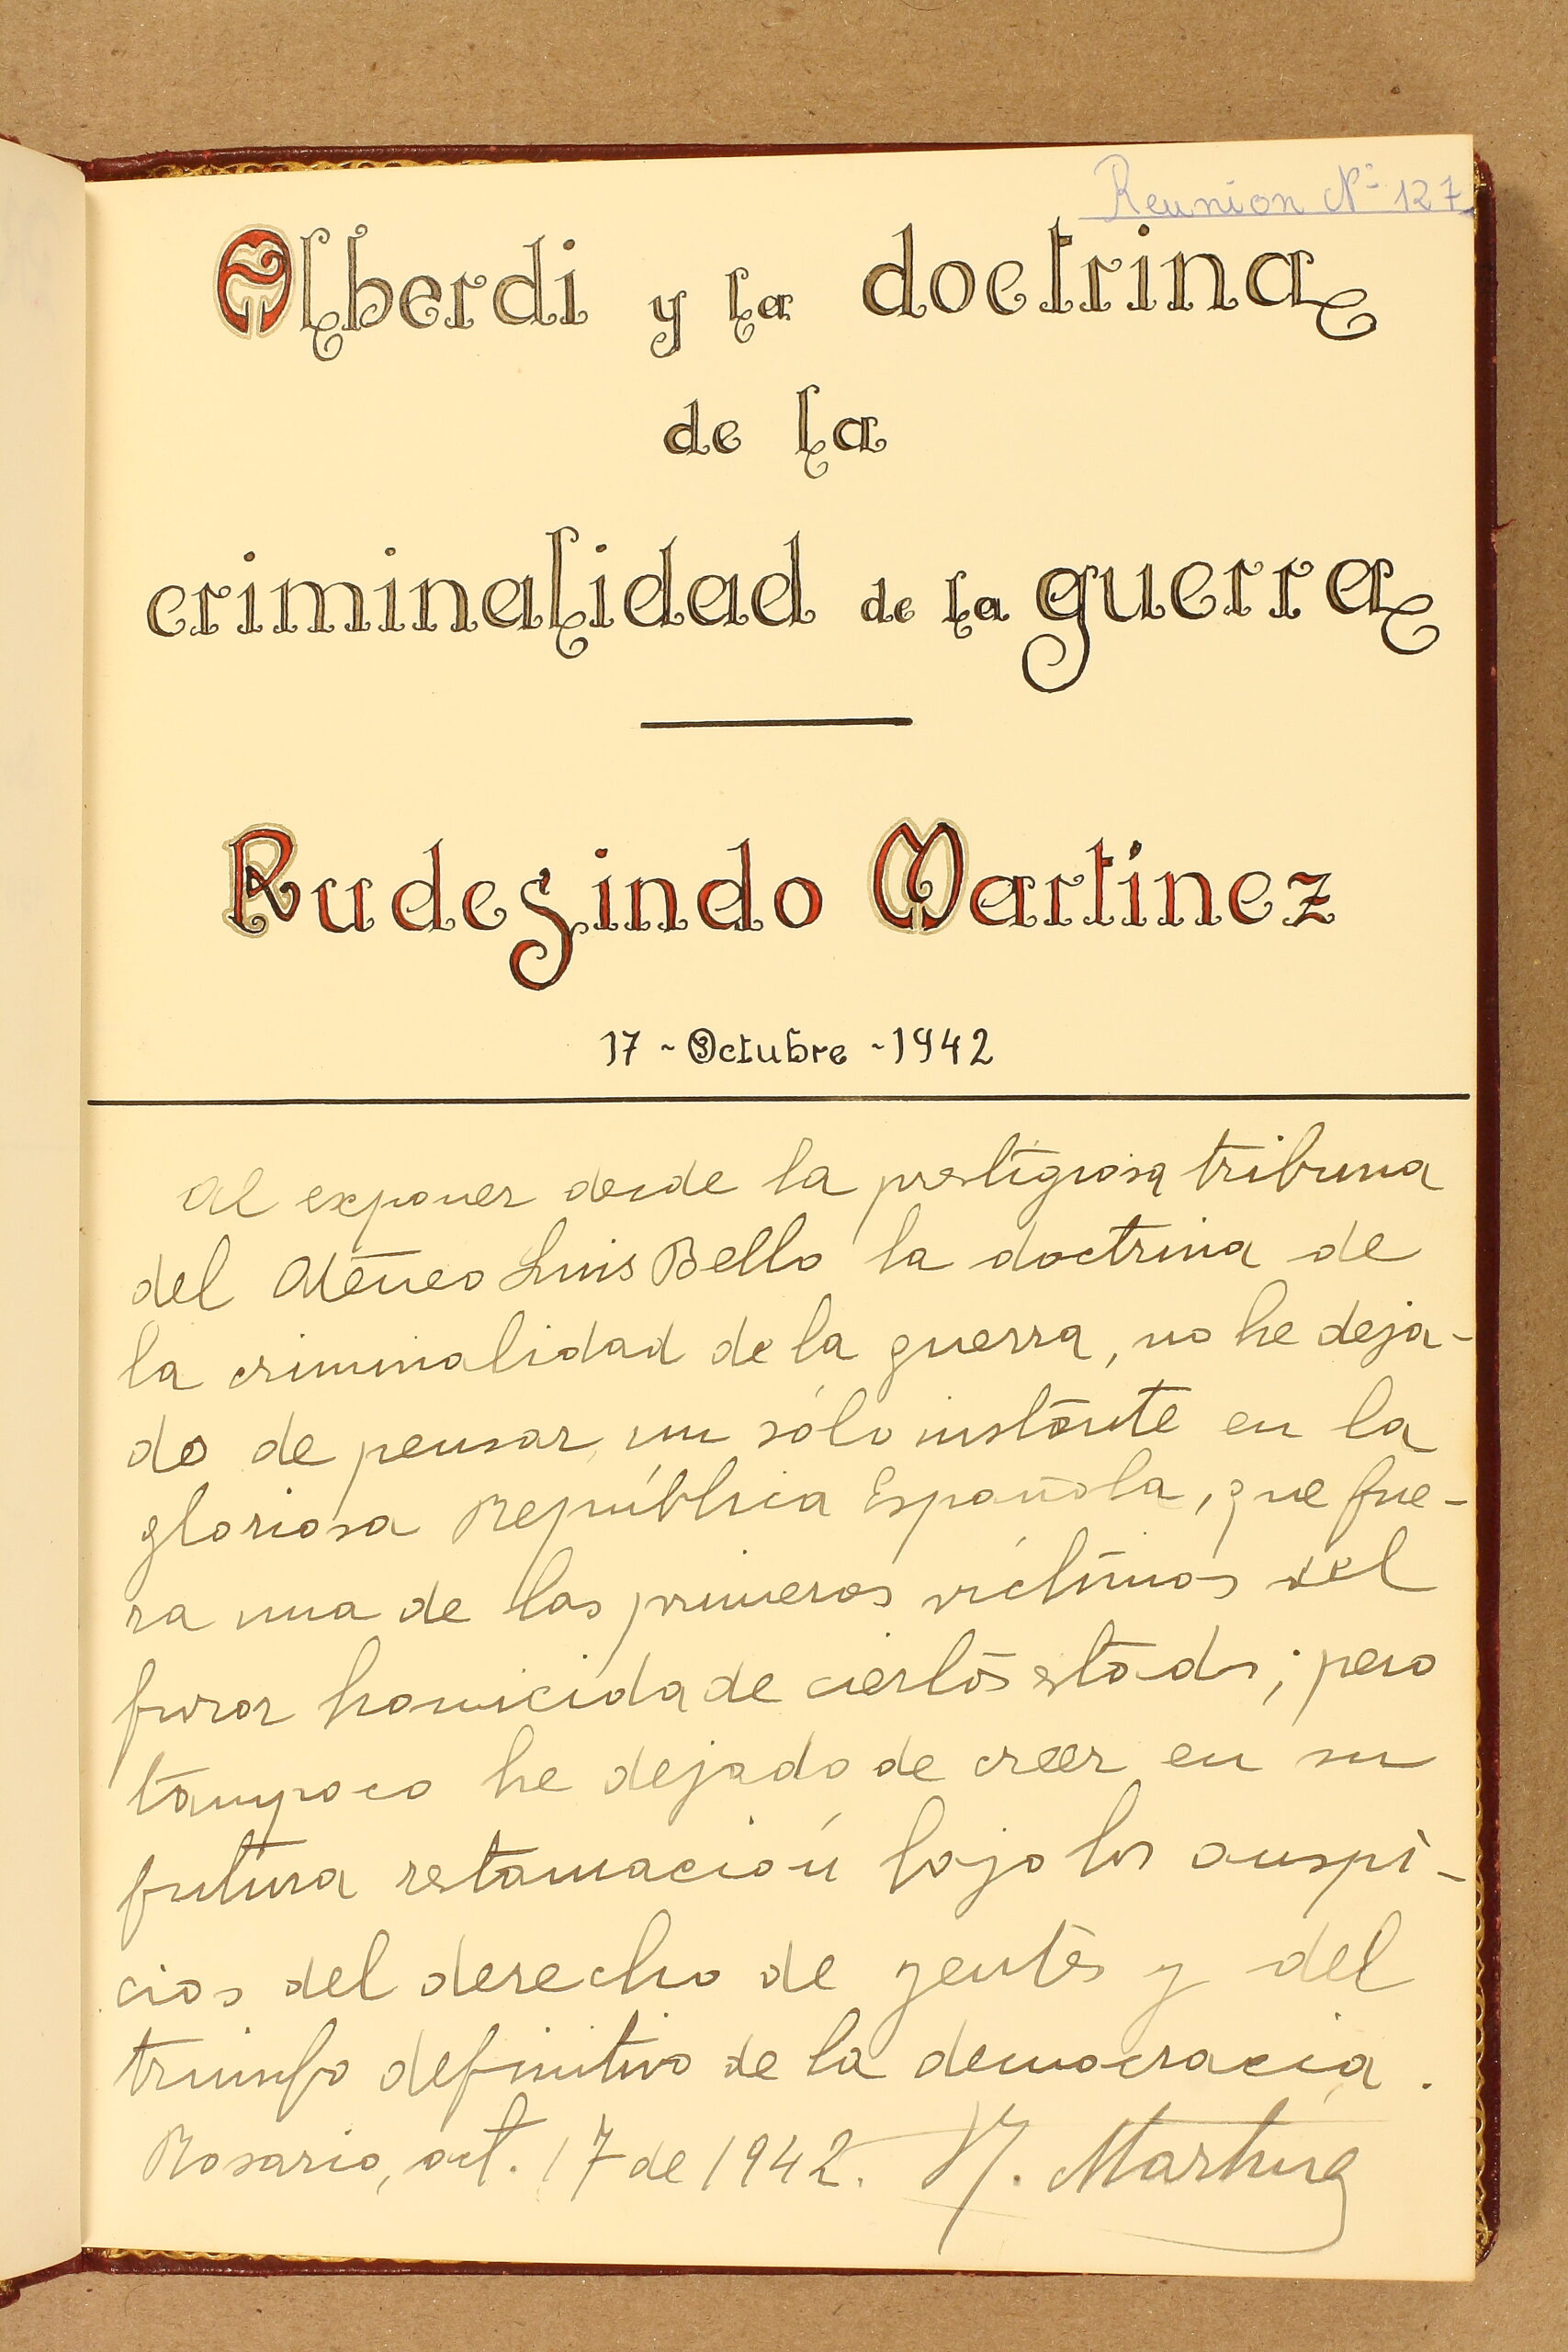 Reunion Nº 127
Alberdi y la doctrina
de la
criminalidad de la guerra
Rudesindo Martinez
17 - Octubre - 1942
Al exponer desde la prestigiosa tribuna
del Ateneo Luis Bello la doctrina de
la criminalidad de la guerra, no he deja-
do de pensar un sólo instante en la
gloriosa República Española, que fue-
ra una de las primeras víctimas del
furor homicida de ciertos estados; pero
tampoco he dejado de creer en su
futura restauración bajo los auspi-
cios del derecho de gentes y del
triunfo definitivo de la democracia.
Rosario, oct. 17 de 1942. R. Martínez